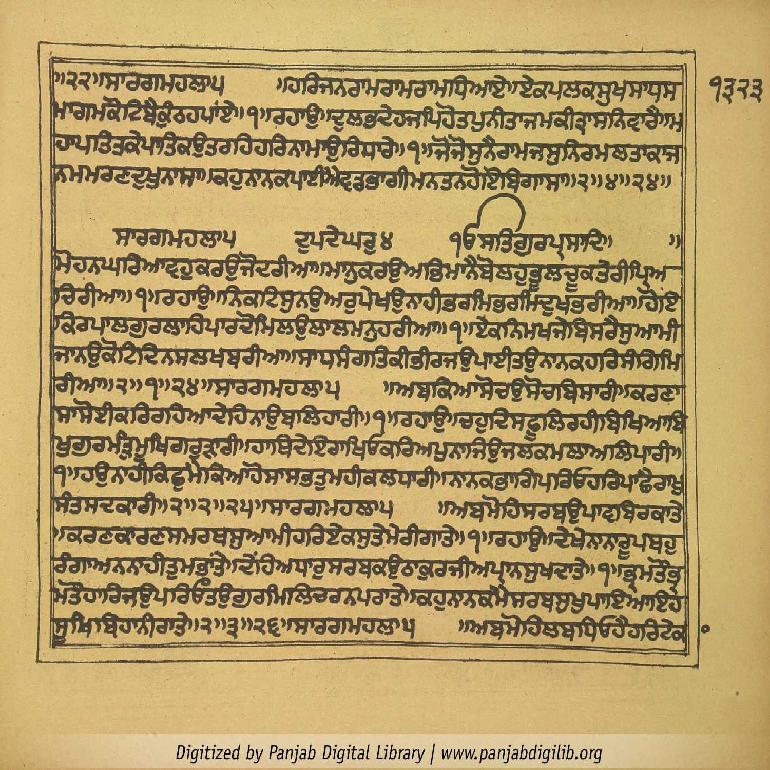 ॥੨੨॥ਸਾਰਗਮਹਲਾ੫ ॥ਹਰਿਜਨਰਾਮਰਾਮਰਾਮਧਿਆਏ॥ਏਕਪਲਕਸੁਖਸਾਧਸ ੧੩੨੩
ਮਾਗਮਕੋਟਿਬੈਕੁੰਠਹਪਾਂਏ॥੧॥ਰਹਾਉ॥ਦੁਲਭਦੇਹਜਪਿਹੋਤਪੁਨੀਤਾਜਮਕੀਤ੍ਰਾਸਨਿਵਾਰੈ॥ਮ
ਹਾਪਤਿਤਕੇਪਾਤਿਕਉਤਰਹਿਹਰਿਨਾਮਾਉਰਿਧਾਰੈ॥੧॥ਜੋਜੋਸੁਨੈਰਾਮਜਸੁਨਿਰਮਲਤਾਕਾਜ
ਨਮਮਰਣਦੁਖੁਨਾਸਾ॥ਕਹੁਨਾਨਕਪਾਈਐਵਡਭਾਗੀਮਨਤਨਹੋਇਬਿਗਾਸਾ॥੨॥੪॥੨੪॥
ਸਾਰਗਮਹਲਾ੫ ਦੁਪਦੇਘਰੁ੪ ੴਸਤਿਗੁਰਪ੍ਰਸਾਦਿ॥ ॥
ਮੋਹਨਘਰਿਆਵਹੁਕਰਉਜੋਦਰੀਆ॥ਮਾਨੁਕਰਉਅਭਿਮਾਨੈਬੋਲਹੁਭੂਲਚੂਕਤੇਰੀਪ੍ਰਿਅ
ਚਿਰੀਆ॥੧॥ਰਹਾਉ॥ਨਿਕਟਿਸੁਨਉਅਰੁਪੇਖਉਨਾਹੀਭਰਮਿਭਰਮਿਦੁਖਭਰੀਆ॥ਹੋਇ
ਕਿਰਪਾਲਗੁਰਲਾਹਿਪਾਰਦੋਮਿਲਉਲਾਲਮਨੁਹਰੀਆ॥੧॥ਏਕਨਿਮਖਜੇਬਿਸਰੈਸੁਆਮੀ
ਜਾਨਉਕੋਟਿਦਿਨਸਲਖਬਰੀਆ॥ਸਾਧਸੰਗਤਿਕੀਭੀਰਜਉਪਾਈਤਉਨਾਨਕਹਰਿਸੰਗਿਮਿ
ਰੀਆ॥੨॥੧॥੨੪॥ਸਾਰਗਮਹਲਾ੫ ॥ਅਬਕਿਆਸੋਚਉਸੋਚਬਿਸਾਰੀ॥ਕਰਣਾ
ਸਾਸੋਈਕਰਿਰਹਿਆਦੇਹਿਨਾਉਬਲਿਹਾਰੀ॥੧॥ਰਹਾਉ॥ਚਹੁਦਿਸਫੂਲਿਰਹੀਬਿਖਿਆਬਿ
ਖੁਗੁਰਮੰਤ੍ਰੁਮੂਖਿਗਰੁੜਾਰੀ॥ਹਾਥਦੇਇਰਾਖਿਓਕਰਿਅਪੁਨਾਜਿਉਜਲਕਮਲਾਅਲਿਪਾਰੀ॥
੧॥ਹਉਨਾਹੀਕਿਛੁਮੈਕਿਆਹੋਸਾਸਭਤੁਮਹੀਕਲਧਾਰੀ॥ਨਾਨਕਭਾਗੀਪਰਿਓਹਰਿਪਾਛੈਰਾਖੁ
ਸੰਤਸਦਕਾਰੀ॥੨॥੨॥੨੫॥ਸਾਰਗਮਹਲਾ੫ ॥ਅਬਮੋਹਿਸਰਬਉਪਾਵਬਿਰਕਾਤੇ
॥ਕਰਣਕਾਰਣਸਮਰਥਸੁਆਮੀਹਰਿਏਕਸੁਤੇਮੇਰੀਗਾਤੇ॥੧॥ਰਹਾਉ॥ਦੇਖੇਨਾਨਾਰੂਪਬਹੁ
ਰੰਗਾਅਨਨਾਹੀਤੁਮਭਾਂਤੇ॥ਦੇਂਹਿਅਧਾਰੁਸਰਬਕਉਠਾਕੁਰਜੀਅਪ੍ਰਾਨਸੁਖਦਾਤੇ॥੧॥ਭ੍ਰਮਤੌਭ੍ਰ
ਮਤੌਹਾਰਿਜਉਪਰਿਓਤਉਗੁਰਮਿਲਿਚਰਨਪਰਾਤੇ॥ਕਹੁਨਾਨਕਮੈਸਰਬਸੁਖੁਪਾਇਆਇਹ
ਸੂਖਿਬਿਹਾਨੀਰਾਤੇ॥੨॥੩॥੨੬॥ਸਾਰਗਮਹਲਾ੫ ॥ਅਬਮੋਹਿਲਬਧਿਓਹੈਹਰਿਟੇਕ
Digitized by Panjab Digital Library | www.panjabdigilib.org